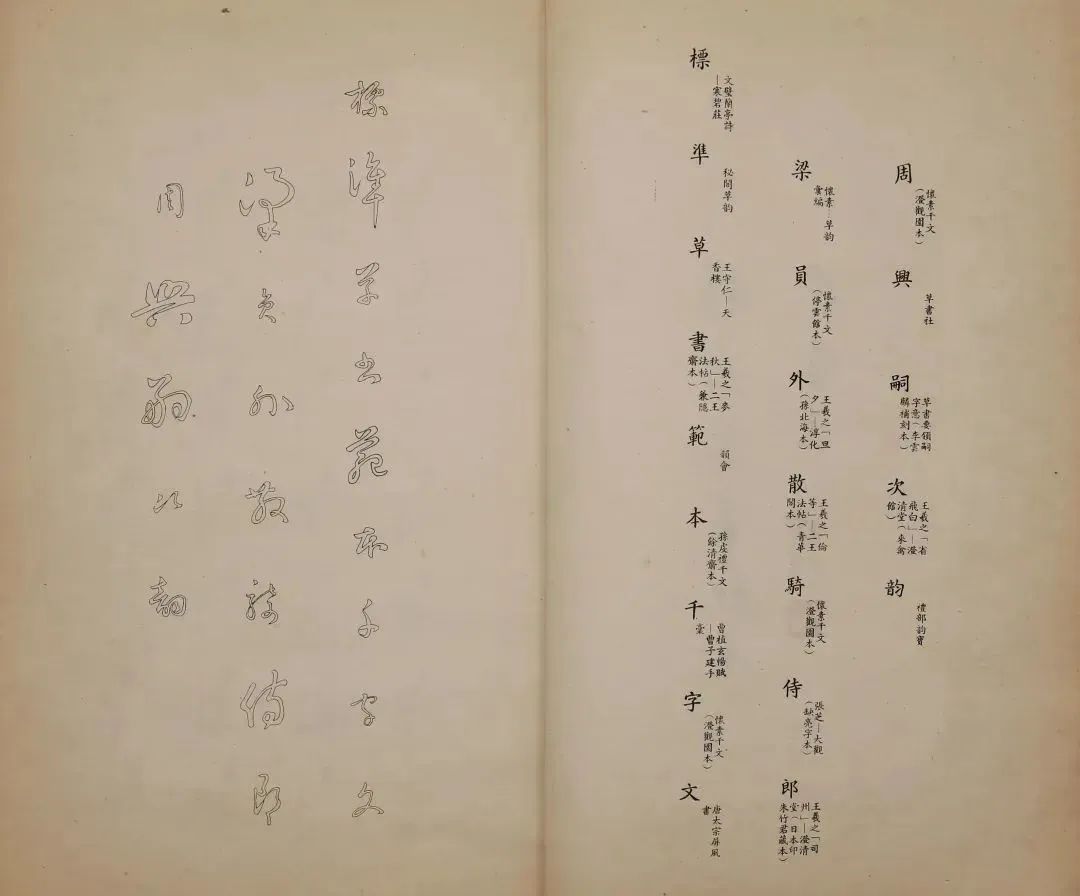 標
文璧蘭亭詩
—寒碧莊
準
秘閣草韵
草
王守仁—天
香樓
書
王羲之「麥
秋」—二王
法帖（兼隱
齋本）
範
韻會
本
孫虔禮千文
（餘清齋本）
千
曹植玄暢賦
—曹子建手
稾
字
懷素千文
（澄觀園本）
文
唐太宗屏風
書
梁
懷素—草韵
彙編
員
懷素千文
（停雲館本）
外
王羲之「旦
夕」—淳化
（孫北海本）
散
王羲之「倫
等」—二王
法帖（青華
閣本）
騎
懷素千文
（澄觀園本）
侍
張芝—大觀
（缺亮字本）
郎
王羲之「司
州」—澄清
堂（日本印
朱竹君藏本）
周
懷素千文
（澄觀園本）
興
草書社
嗣
草書要領嗣
字意（李雲
麟補刻本）
次
王羲之「省
飛白」—澄
清堂（來禽
館）
韵
禮部韵寶
標準草書範本千字文
梁員外散騎侍郎
周興嗣次韵